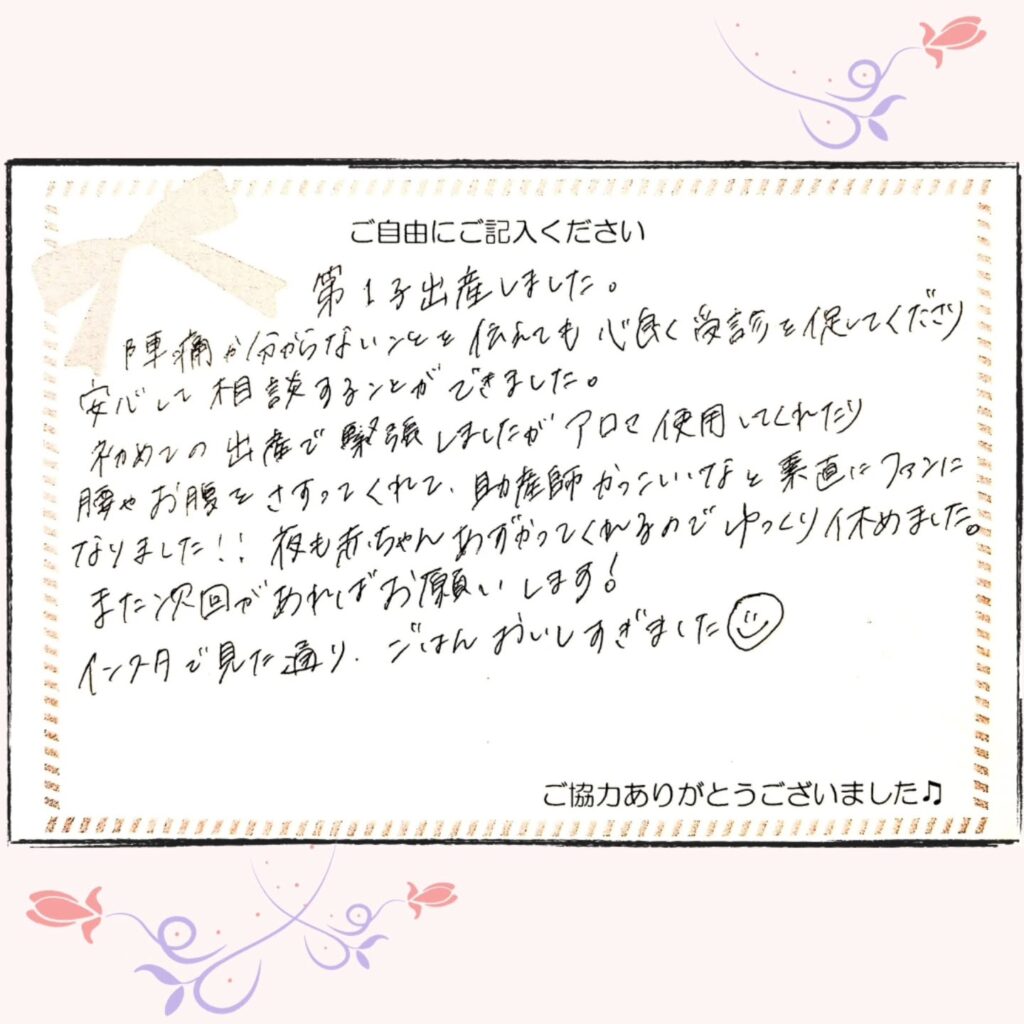 ご自由にご記入ください
第1子出産しました。
陣痛か分からないことを伝えても心良く受診を促してくださり
安心して相談することができました。
初めての出産で緊張しましたがアロマ使用してくれたり
腰やお腹をさすってくれて、助産師かっこいいなと素直にファンに
なりました!! 夜も赤ちゃんあずかってくれるのでゆっくり休めました。
また次回があればお願いします!
インスタで見た通り、ごはんおいしすぎました
ご協力ありがとうございました♫